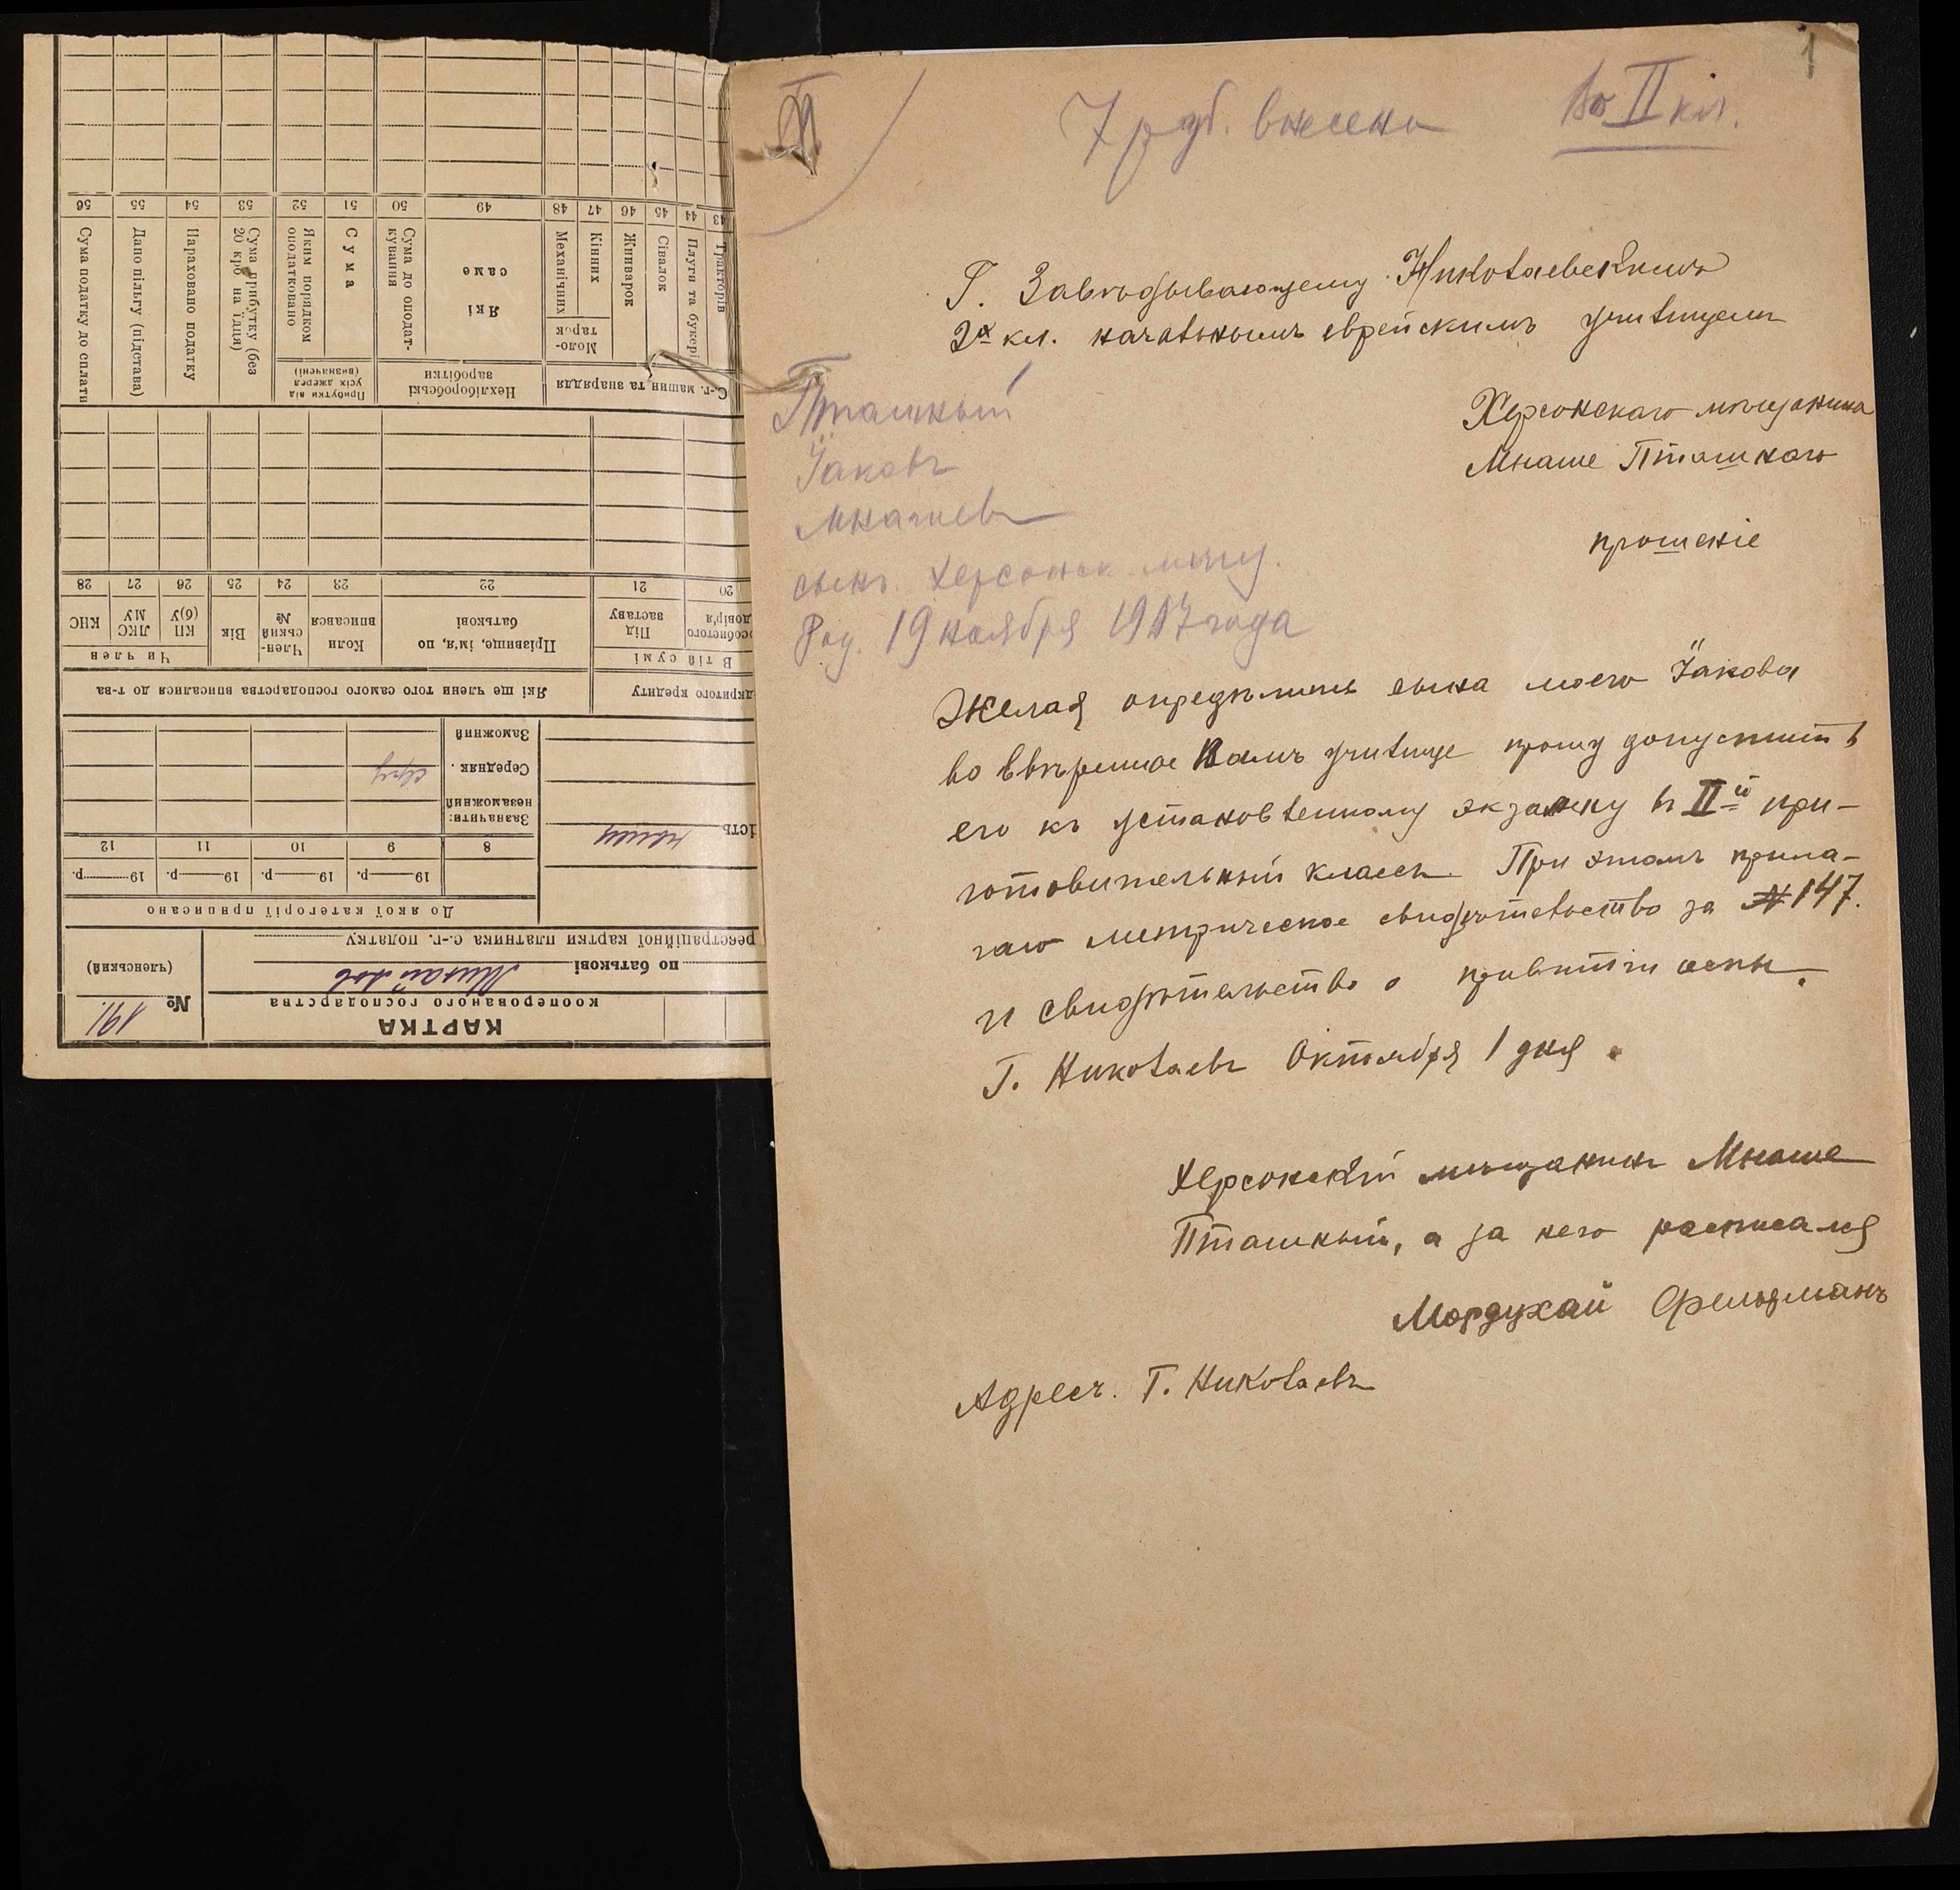 1
7 руб. внесено
Во II кл.
Г. Завѣдывающему Николаевскимъ
2х кл. начальнымъ еврейскимъ училищемъ
Херсонскаго мѣщанина
Мнаше Пташнаго
прошеніе
Пташный
Яковъ
Мнашев
сынъ Херсонск. мѣщ.
Род. 19 ноября
Желая опредѣлить сына моего Якова
во ввѣренное Вамъ училище прошу допустить
его къ установленному экзамену въ IIй при-
готовительный классъ. При этомъ прила-
гаю метрическое свидѣтельство за № 147.
и свидѣтельство о привитіи оспы.
Г. Николаевъ Октября 1 дня.
Херсонскій мѣщанинъ Мнаше
Пташный, а за него расписался
Мордухай Фельдманъ
Адресъ. Г. Николаевъ
КАРТКА
кооперованого господарства
№ 191.
(членський)
по батькові Михайлов
реєстраційної картки платника с.-г. податку
До якої категорії приписано
19 р. 19 р. 19 р. 19 р.
8 9 10 11 12
Зазначити:
незаможний
Середняк
Заможний
Які ще члени того самого господарства вписалися до т-ва
Прізвище, ім'я, по батькові
Коли вписався
Член-ський №
Вік
Чи член
КП (б)У
ЛКС МУ
КНС
В тій сумі
Під заставу
20 21 22 23 24 25 26 27 28
С.-г. машин та знаряддя
Нехліборобські заробітки
Прибутки від усіх джерел (визначені)
Тракторів
Плуги та букері
Сівалок
Жниварок
Кінних
Механічних
Моло-тарок
Які саме
Сума до оподат-кування
Сума
Яким порядком оподатковано
Сума прибутку (без 20 крб на їдця)
Нараховано податку
Дано пільгу (підстава)
Сума податку до сплати
43 44 45 46 47 48 49 50 51 52 53 54 55 56